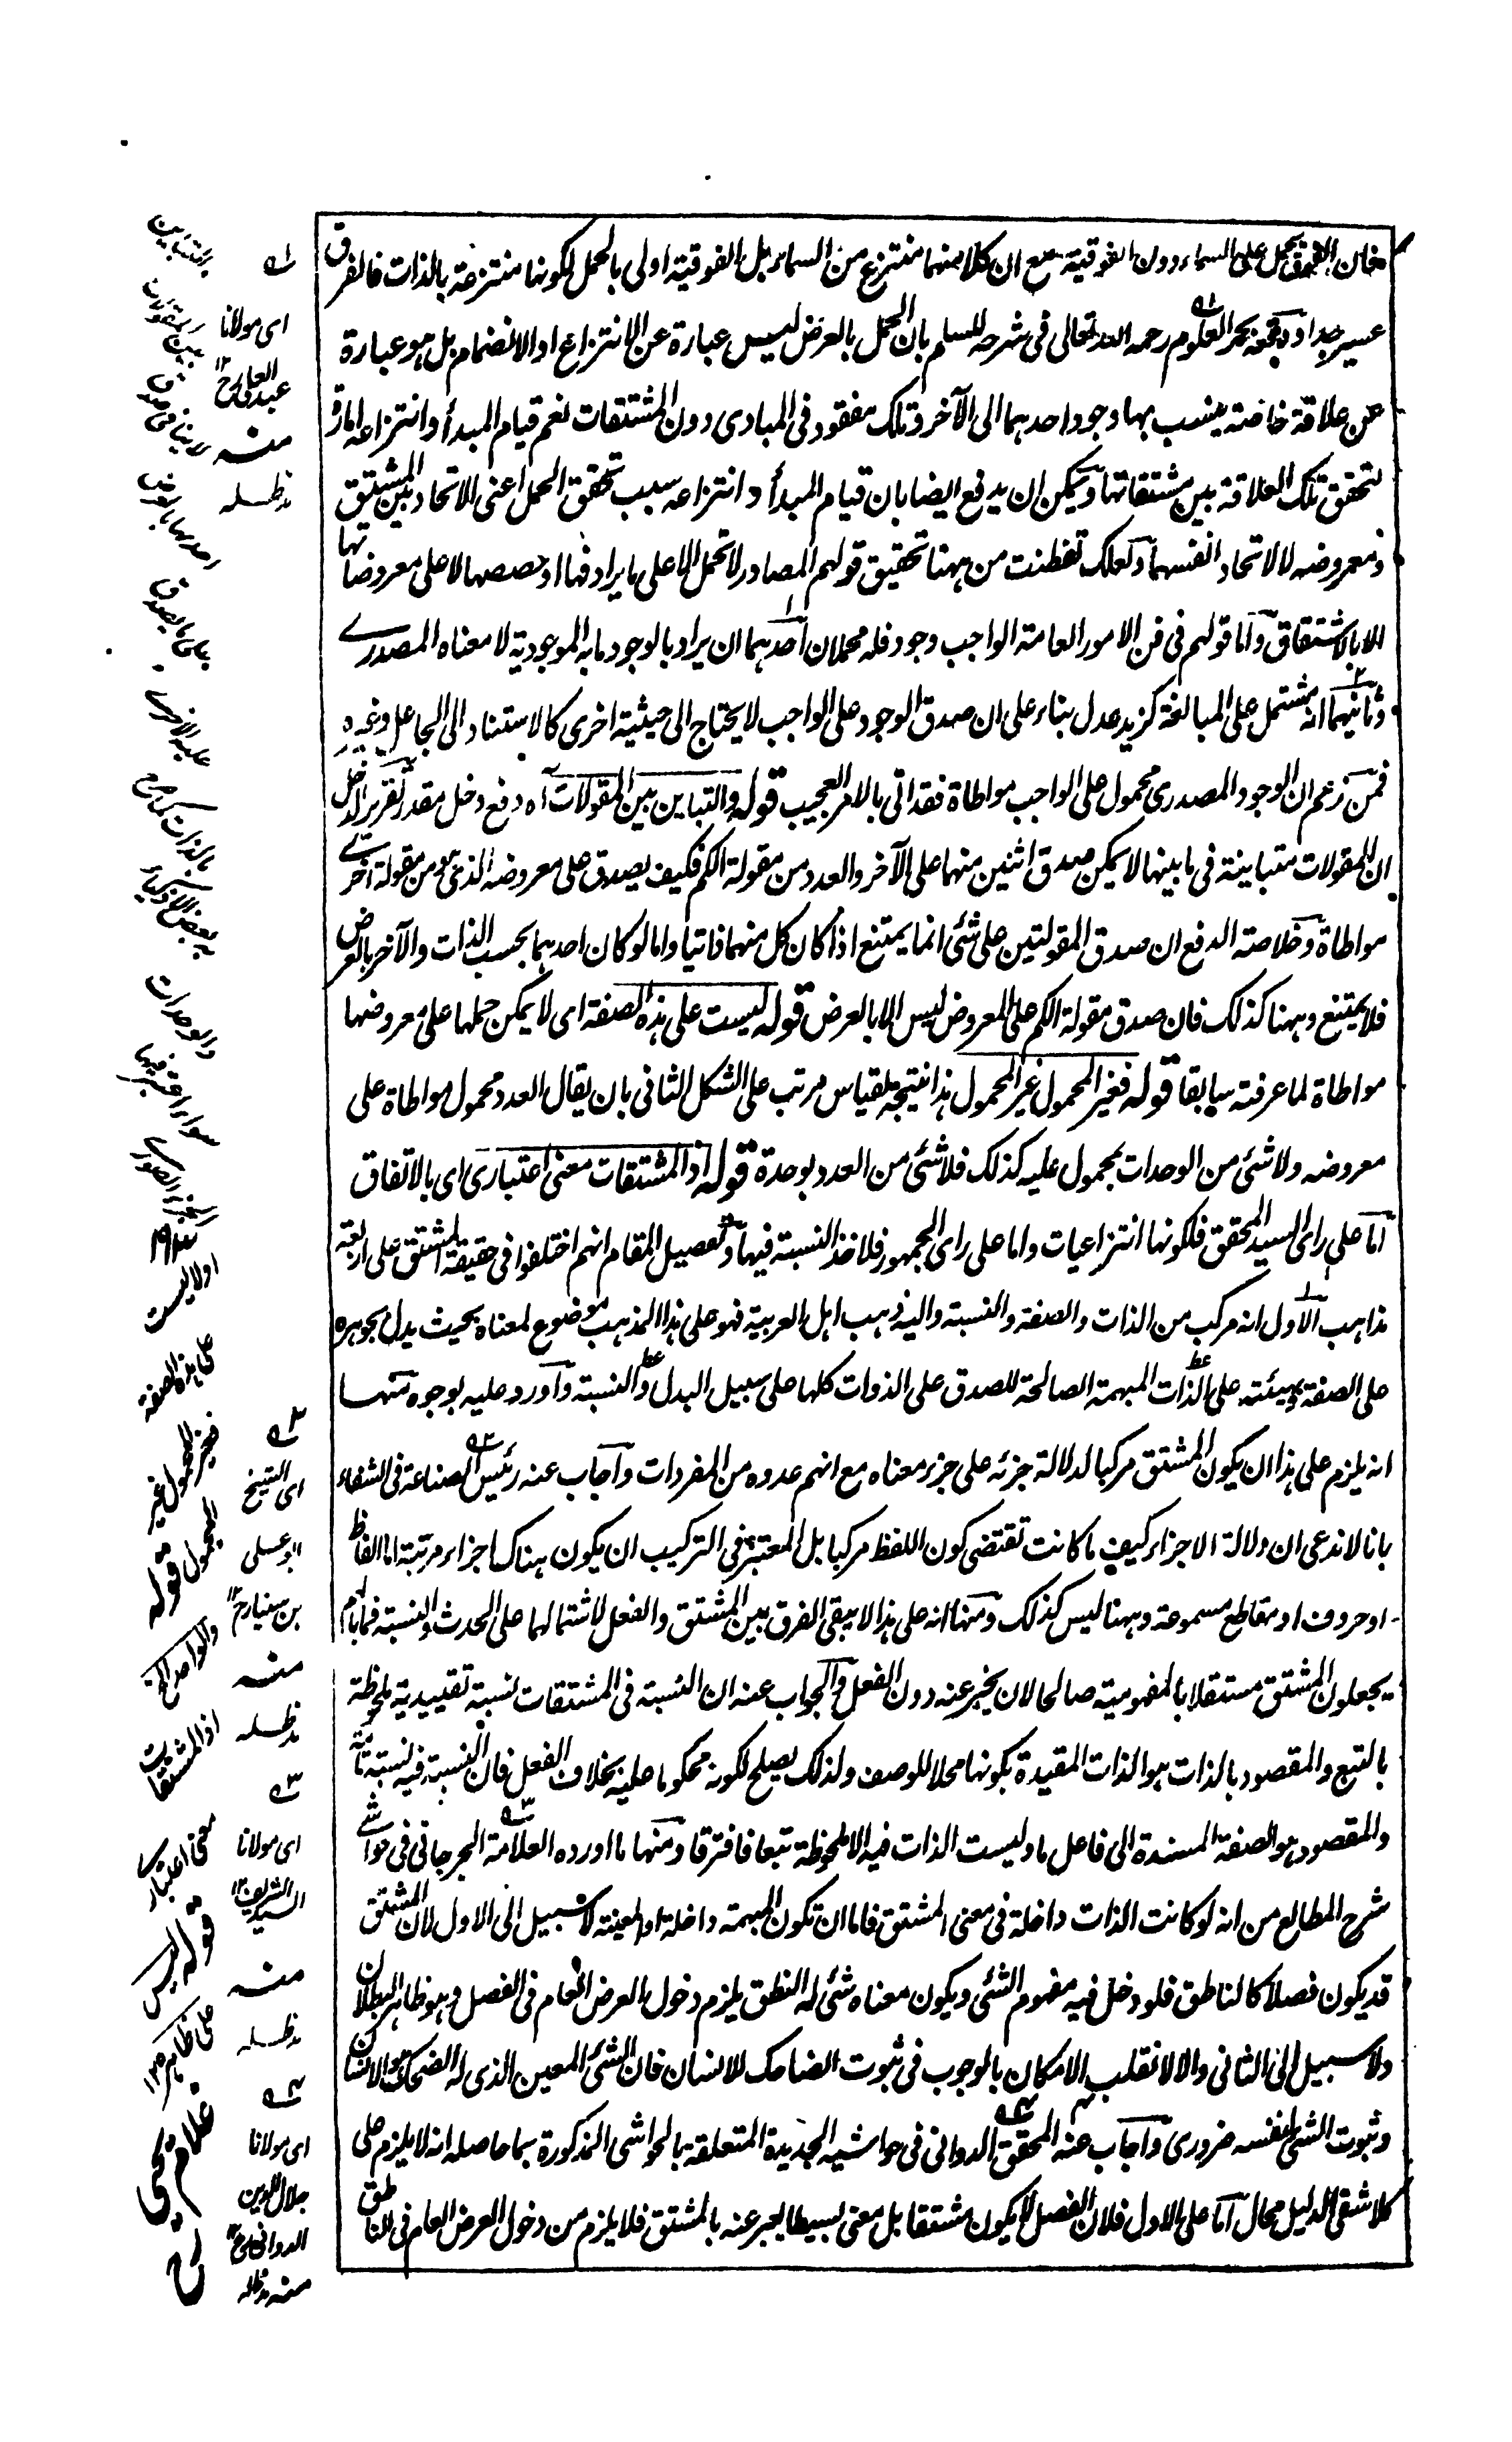 فان الفوق يحمل على السماء دون الفوقية مع ان كلا منهما منتزع من السماء بل الفوقية اولى بالحمل لكونها منتزعة بالذات فالفرق
عسير جدا ودفعه بحر العلوم رحمه الله تعالى فى شرحه للسلم بان الحمل بالعرض ليس عبارة عن الانتزاع او الانضمام بل هو عبارة
عن علاقة خاصة ينسب بها وجود احدهما الى الآخر وتلك مفقود فى المبادى دون المشتقات نعم قيام المبدأ وانتزاعه امارة
لتحقق تلك العلاقة بين مشتقاتها ويمكن ان يدفع ايضا بان قيام المبدأ وانتزاعه سبب تحقق الحمل اعنى الاتحاد بين المشتق
ومعروضه لا لاتحاد انفسهما ولعلك تفطنت من ههنا تحقيق قولهم المصادر لا تحمل الا على ما يرادفها او حصصها لا على معروضاتها
الا بالاشتقاق واما قولهم فى فن الامور العامة الواجب وجود فله محملان احدهما ان يراد بالوجود ما به الموجودية لا معناه المصدرے
وثانيهما انه مشتمل على المبالغة كزيد عدل بناء على ان صدق الوجود على الواجب لا يحتاج الى حيثية اخرى كالاستناد الى الجاعل وغيره
فمن زعم ان الوجود المصدرى محمول على الواجب مواطاة فقد اتى بالامر العجيب قوله والتباين بين المقولات آه دفع دخل مقدر تقرير الدخل
ان المقولات متباينة فى ما بينها لا يمكن صدق اثنين منها على الآخر والعدد من مقولة الكم فكيف يصدق على معروضه الذى هو من مقولة اخرى
مواطاة وخلاصة الدفع ان صدق المقولتين على شئ انما يمتنع اذا كان كل منهما ذاتيا واما لو كان احدهما بحسب الذات والآخر بالعرض
فلا يمتنع وههنا كذلك فان صدق مقولة الكم على المعروض ليس الا بالعرض قوله ليست على هذه الصفة اى لا يمكن حملها على معروضها
مواطاة لما عرفته سابقا قوله فغير المحمول غير المحمول هذا نتيجة لقياس مرتب على الشكل الثانى بان يقال العدد محمول مواطاة على
معروضه ولا شئ من الوحدات بمحمول عليه كذلك فلا شئ من العدد بوحدة قوله اذ المشتقات معنى اعتبارى اى بالاتفاق
اما على راى السيد المحقق فلكونها انتزاعيات واما على راى الجمهور فلاخذ النسبة فيها وتفصيل المقام انهم اختلفوا فى حقيقة المشتق على اربعة
مذاهب الاول انه مركب من الذات والصفة والنسبة واليه ذهب اهل العربية فهو على هذا المذهب موضوع لمعناه بحيث يدل بجوهره
على الصفة وبهيئته على الذات المبهمة الصالحة للصدق على الذوات كلها على سبيل البدل والنسبة واورد عليه بوجوه منها
انه يلزم على هذا ان يكون المشتق مركبا لدلالة جزئه على جزء معناه مع انهم عدوه من المفردات واجاب عنه رئيس الصناعة فى الشفاء
بانا لا ندعى ان دلالة الاجزاء كيف ما كانت تقتضى كون اللفظ مركبا بل المعتبر فى التركيب ان يكون هناك اجزاء مرتبة اما الفاظ
او حروف او مقاطع مسموعة وههنا ليس كذلك ومنها انه على هذا لا يبقى الفرق بين المشتق والفعل لاشتمالهما على الحدث والنسبة فما بالهم
يجعلون المشتق مستقلا بالمفهومية صالحا لان يخبر عنه دون الفعل والجواب عنه ان النسبة فى المشتقات نسبة تقييدية ملحوظة
بالتبع والمقصود بالذات هو الذات المقيدة بكونها محلا للوصف ولذلك يصلح لكونه محكوما عليه بخلاف الفعل فان النسبة فيه نسبة تامة
والمقصود هو الصفة المسندة الى فاعل ما وليست الذات فيه الا ملحوظة تبعا فافترقا ومنها ما اورده العلامة الجرجانى فى حواشے
شرح المطالع من انه لو كانت الذات داخلة فى معنى المشتق فاما ان تكون المبهمة داخلة او المعينة لا سبيل الى الاول لان المشتق
قد يكون فصلا كالناطق فلو دخل فيه مفهوم الشئ ويكون معناه شئ له النطق يلزم دخول العرض العام فى الفصل وهو ظاهر البطلان
ولا سبيل الى الثانى والا لانقلب الامكان بالوجوب فى ثبوت الضاحك للانسان فان الشئ المعين الذى له الضحك هو الانسان
وثبوت الشئ لنفسه ضرورى واجاب عنه المحقق الدوانى فى حواشيه الجديدة المتعلقة بالحواشى المذكورة بما حاصله انه لا يلزم على
كلا شقى الدليل محال اما على الاول فلان الفصل لا يكون مشتقا بل معنى بسيطا يعبر عنه بالمشتق فلا يلزم من دخول العرض العام فى الناطق
ـه١
اى مولانا
عبد العلى رح ١٢
منه
مد ظله
ـه٢
اى الشيخ
ابو على
بن سينا رح ١٢
منه
مد ظله
ـه٣
اى مولانا
السيد الشريف ١٢
منه
مد ظله
ـه٤
اى مولانا
جلال الدين
الدوانى رح ١٢
منه مد ظله
والتباين
بين المقولات
احدهما بالعرض
والوحدات
اولا ليست
على هذه الصفة
فغير المحمول غير
المحمول قوله
اذ المشتقات
معنى اعتبارى
قوله ليس
على ظاهره ١٢
غلام يحيى
رح